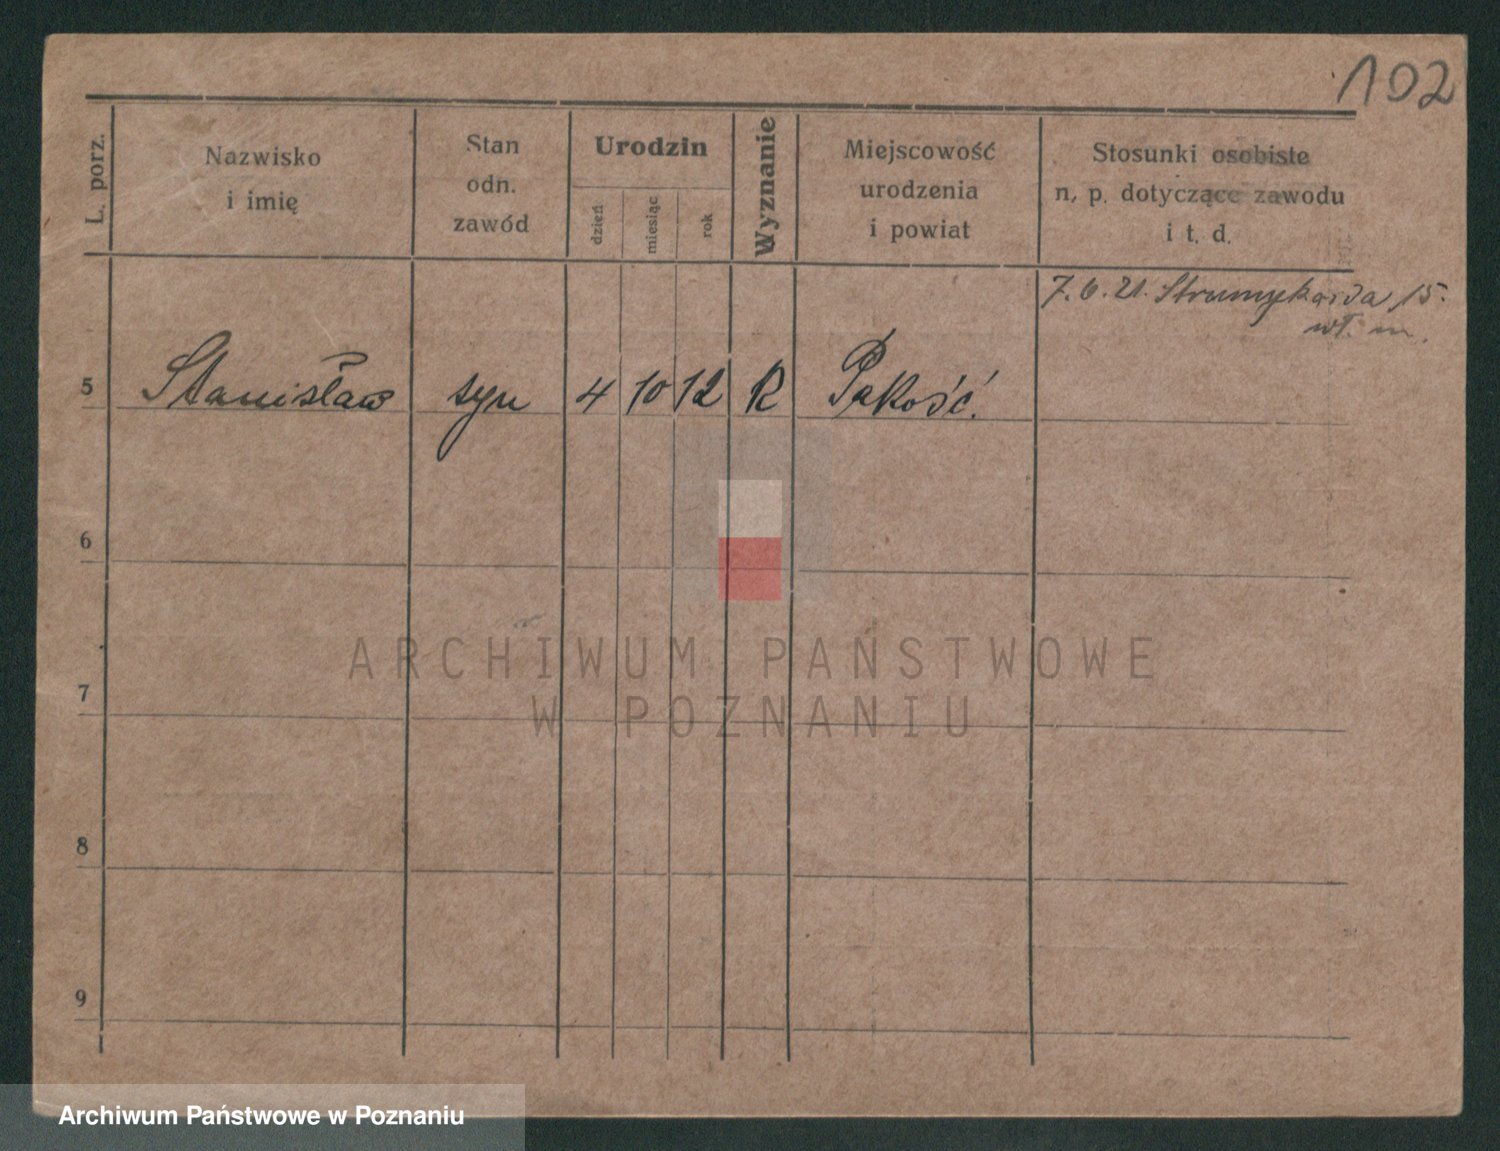 102
L. porz.
Nazwisko
i imię
Stan
odn.
zawód
Urodzin
dzień
miesiąc
rok
Wyznanie
Miejscowość
urodzenia
i powiat
Stosunki osobiste
n, p. dotyczące zawodu
i t. d.
7. 6. 21. 15.
wł. m.
5 Stanisław syn 4 10 12 R Pakość.
6
7
8
9
ARCHIWUM PAŃSTWOWE
W POZNANIU
Archiwum Państwowe w Poznaniu